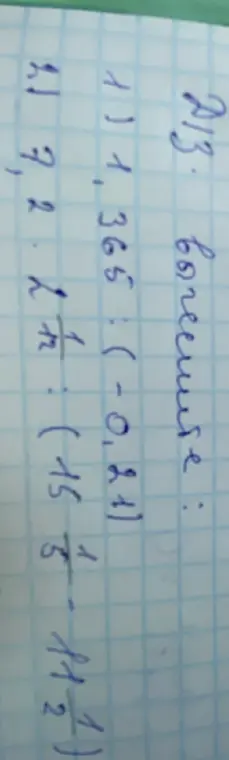 Д/З. вычислите:
1) 1,365 : (-0,21)
2) 7,2 · 2 1/12 : (15 1/5 - 11 1/2)